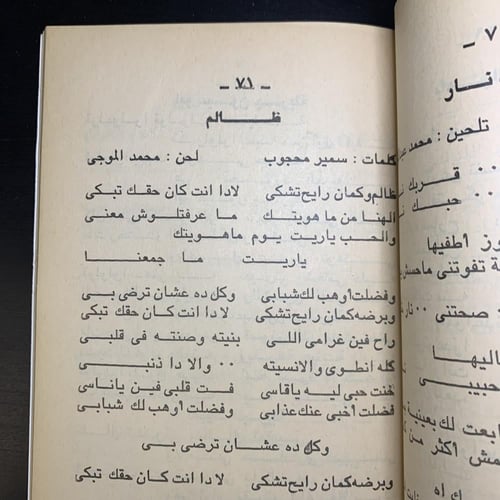 - ٧١ -
ظالم
كلمات : سمير محجوب لحن : محمد الموجى
ظالم وكمان رايح تشكى لادا انت كان حقك تبكى
الهنا من ما هويتك ما عرفتلوش معنى
والحب ياريت يوم ماهويتك
ياريت ما جمعنا
وفضلت أوهب لك شبابى وكل ده عشان ترضى بى
وبرضه كمان رايح تشكى لادا انت كان حقك تبكى
راح فين غرامى اللى بنيته وصنته فى قلبى
كله انطوى والانسيته ٠٠ والا دا ذنبى
هنت حبى ليه ياقاسى فت قلبى فين ياناسى
فضلت أخبى عنك عذابى وفضلت أوهب لك شبابى
وكل ده عشان ترضى بى
وبرضه كمان رايح تشكى لادا انت كان حقك تبكى
- ٧
نار
تلحين : محمد
٠٠ قربك
٠٠ حبك
أطفيها
تفوتنى
صحتنى ٠٠ نار
اليها
ابعت لك بعينيه
أكثر من